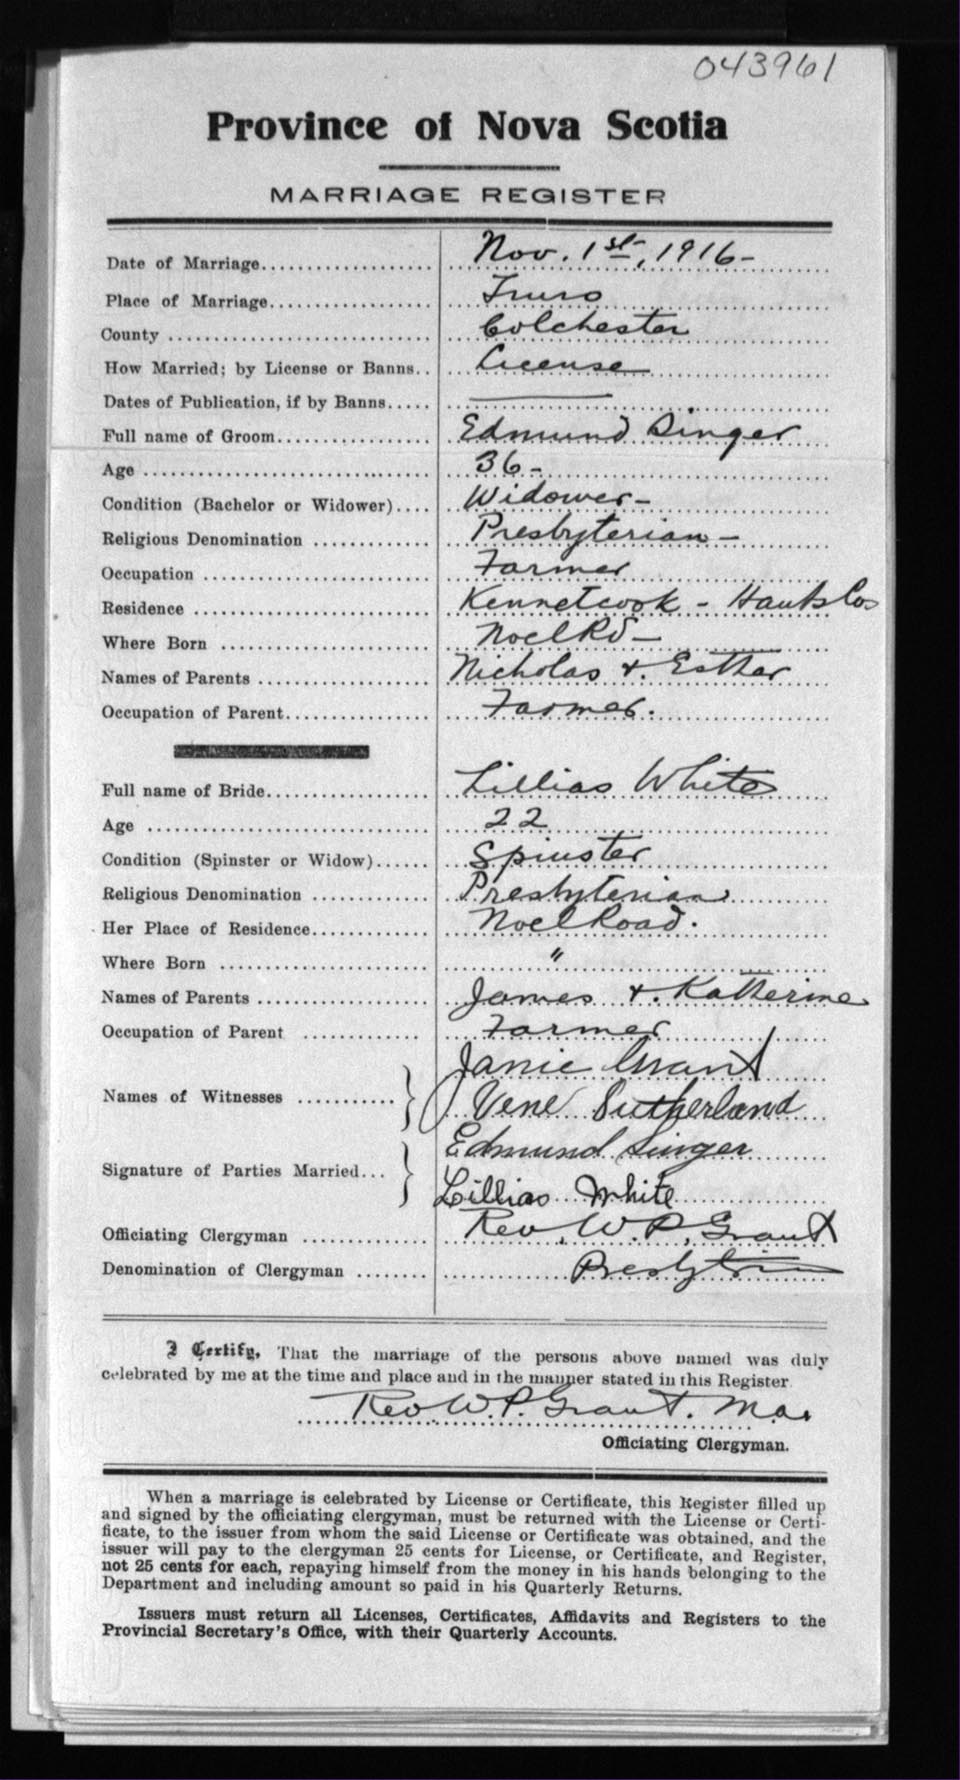 043961
Province of Nova Scotia
MARRIAGE REGISTER
Date of Marriage................... Nov. 1st, 1916-
Place of Marriage.................. Truro
County ............................ Colchester
How Married; by License or Banns.. License
Dates of Publication, if by Banns.....
Full name of Groom................. Edmund Singer
Age ............................... 36-
Condition (Bachelor or Widower).... Widower-
Religious Denomination ............. Presbyterian-
Occupation ......................... Farmer
Residence .......................... Kennetcook - Hants Co
Where Born ......................... Noel Rd-
Names of Parents ................... Nicholas +. Esther
Occupation of Parent................ Farmer.
Full name of Bride.................. Lillias White
Age ................................ 22
Condition (Spinster or Widow)...... Spinster
Religious Denomination ............. Presbyterian
Her Place of Residence............. Noel Road.
Where Born ......................... "
Names of Parents ................... James +. Katherine
Occupation of Parent ............. Farmer
Janie Grant
Names of Witnesses ...........
Vene Sutherland
Edmund Singer
Signature of Parties Married...
Lillias White
Officiating Clergyman ............. Rev. W. P. Grant
Denomination of Clergyman ........
I Certify, That the marriage of the persons above named was duly
celebrated by me at the time and place and in the manner stated in this Register.
Rev. W. P. Grant. M.a.
Officiating Clergyman.
When a marriage is celebrated by License or Certificate, this Register filled up
and signed by the officiating clergyman, must be returned with the License or Certi-
ficate, to the issuer from whom the said License or Certificate was obtained, and the
issuer will pay to the clergyman 25 cents for License, or Certificate, and Register,
not 25 cents for each, repaying himself from the money in his hands belonging to the
Department and including amount so paid in his Quarterly Returns.
Issuers must return all Licenses, Certificates, Affidavits and Registers to the
Provincial Secretary's Office, with their Quarterly Accounts.